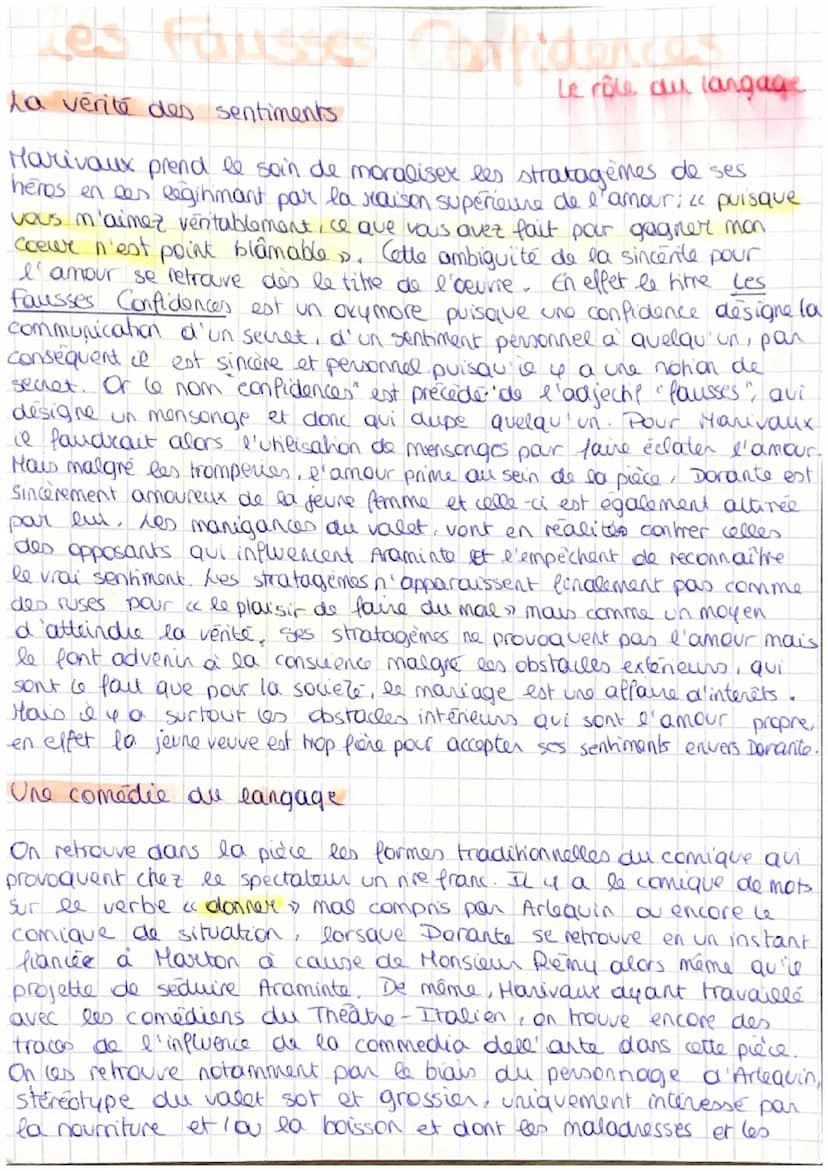 Les Fausses Confidences
Le rôle du langage
La vérité des sentiments
Marivaux prend le soin de moraliser les stratagèmes de ses
héros en les légitimant par la raison supérieure de l'amour ; « puisque
vous m'aimez véritablement, ce que vous avez fait pour gagner mon
coeur n'est point blâmable ». Cette ambiguité de la sincérité pour
l'amour se retrouve dès le titre de l'œuvre. En effet le titre Les
Fausses Confidences est un oxymore puisque une confidence désigne la
communication d'un secret, d'un sentiment personnel à quelqu'un, par
conséquent il est sincère et personnel puisqu'il y a une notion de
secret. Or le nom "confidences" est précédé de l'adjectif "fausses", qui
désigne un mensonge et donc qui dupe quelqu'un. Pour Marivaux
il faudrait alors l'utilisation de mensonges pour faire éclater l'amour.
Mais malgré les tromperies, l'amour prime au sein de sa pièce, Dorante est
sincèrement amoureux de la jeune femme et celle-ci est également attirée
par lui. Les manigances du valet, vont en réalités contrer celles
des opposants qui influencent Araminte et l'empêchent de reconnaître
le vrai sentiment. Les stratagèmes n'apparaissent finalement pas comme
des ruses pour « le plaisir de faire du mal » mais comme un moyen
d'atteindre la vérité. Ses stratagèmes ne provoquent pas l'amour mais
le font advenir à la conscience malgré les obstacles extérieurs, qui
sont le fait que pour la société, le mariage est une affaire d'interêts.
Mais il y a surtout les obstacles intérieurs qui sont l'amour propre,
en effet la jeune veuve est trop fière pour accepter ses sentiments envers Dorante.
Une comédie du langage
On retrouve dans la pièce les formes traditionnelles du comique qui
provoquent chez le spectateur un rire franc. Il y a le comique de mots
sur le verbe « donner » mal compris par Arlequin ou encore le
comique de situation, lorsque Dorante se retrouve en un instant
fiancée à Marton à cause de Monsieur Rémy alors même qu'il
projette de séduire Araminte. De même, Marivaux ayant travaillé
avec les comédiens du Théâtre-Italien, on trouve encore des
traces de l'influence de la commedia dell'arte dans cette pièce.
On les retrouve notamment par le biais du personnage d'Arlequin,
stéréotype du valet sot et grossier, uniquement intéressé par
la nourriture et/ou la boisson et dont les maladresses et les